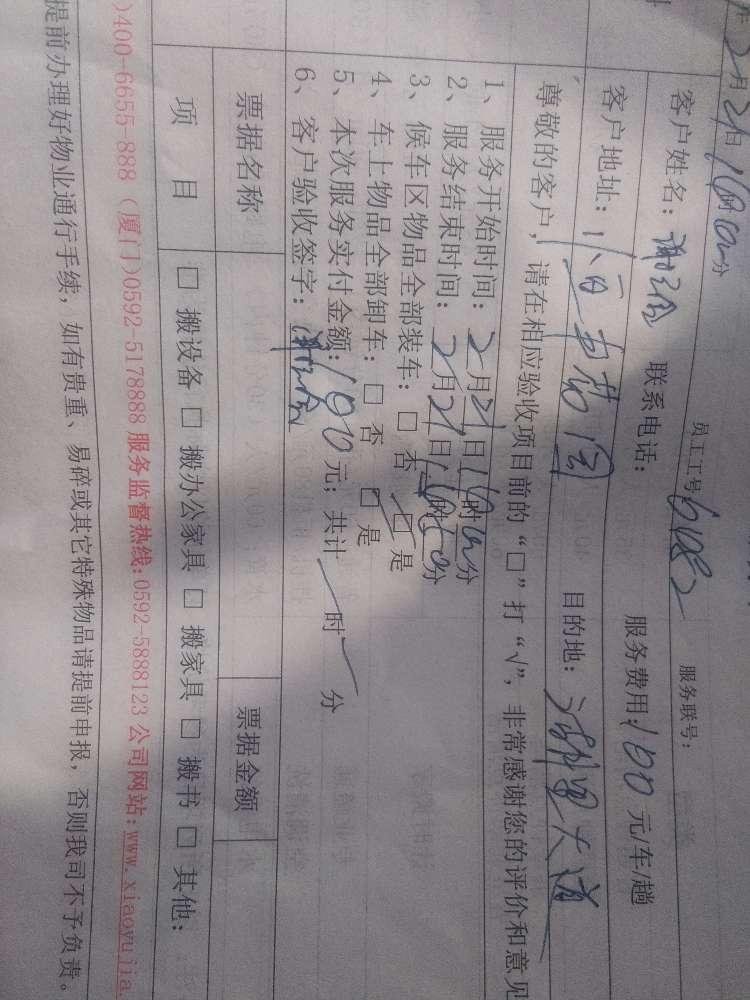 2月21日16时00分
员工工号:6082 服务联号:
客户姓名: 联系电话: 服务费用:100元/车/趟
客户地址: 目的地: 大道
尊敬的客户,请在相应验收项目前的“□”打“√”,非常感谢您的评价和意见
1、服务开始时间:2月21日16时00分
2、服务结束时间:2月21日16时50分
3、候车区物品全部装车:□否 □是
4、车上物品全部卸车:□否 □是
5、本次服务实付金额:100元;共计 时 分
6、客户验收签字:
票据名称 票据金额
项 目 □搬设备 □搬办公家具 □搬家具 □搬书 □其他:
)400-6655-888 (厦门)0592-5178888 服务监督热线:0592-5888123 公司网站:www.xiaoyujia.
提前办理好物业通行手续,如有贵重、易碎或其它特殊物品请提前申报,否则我司不予负责。